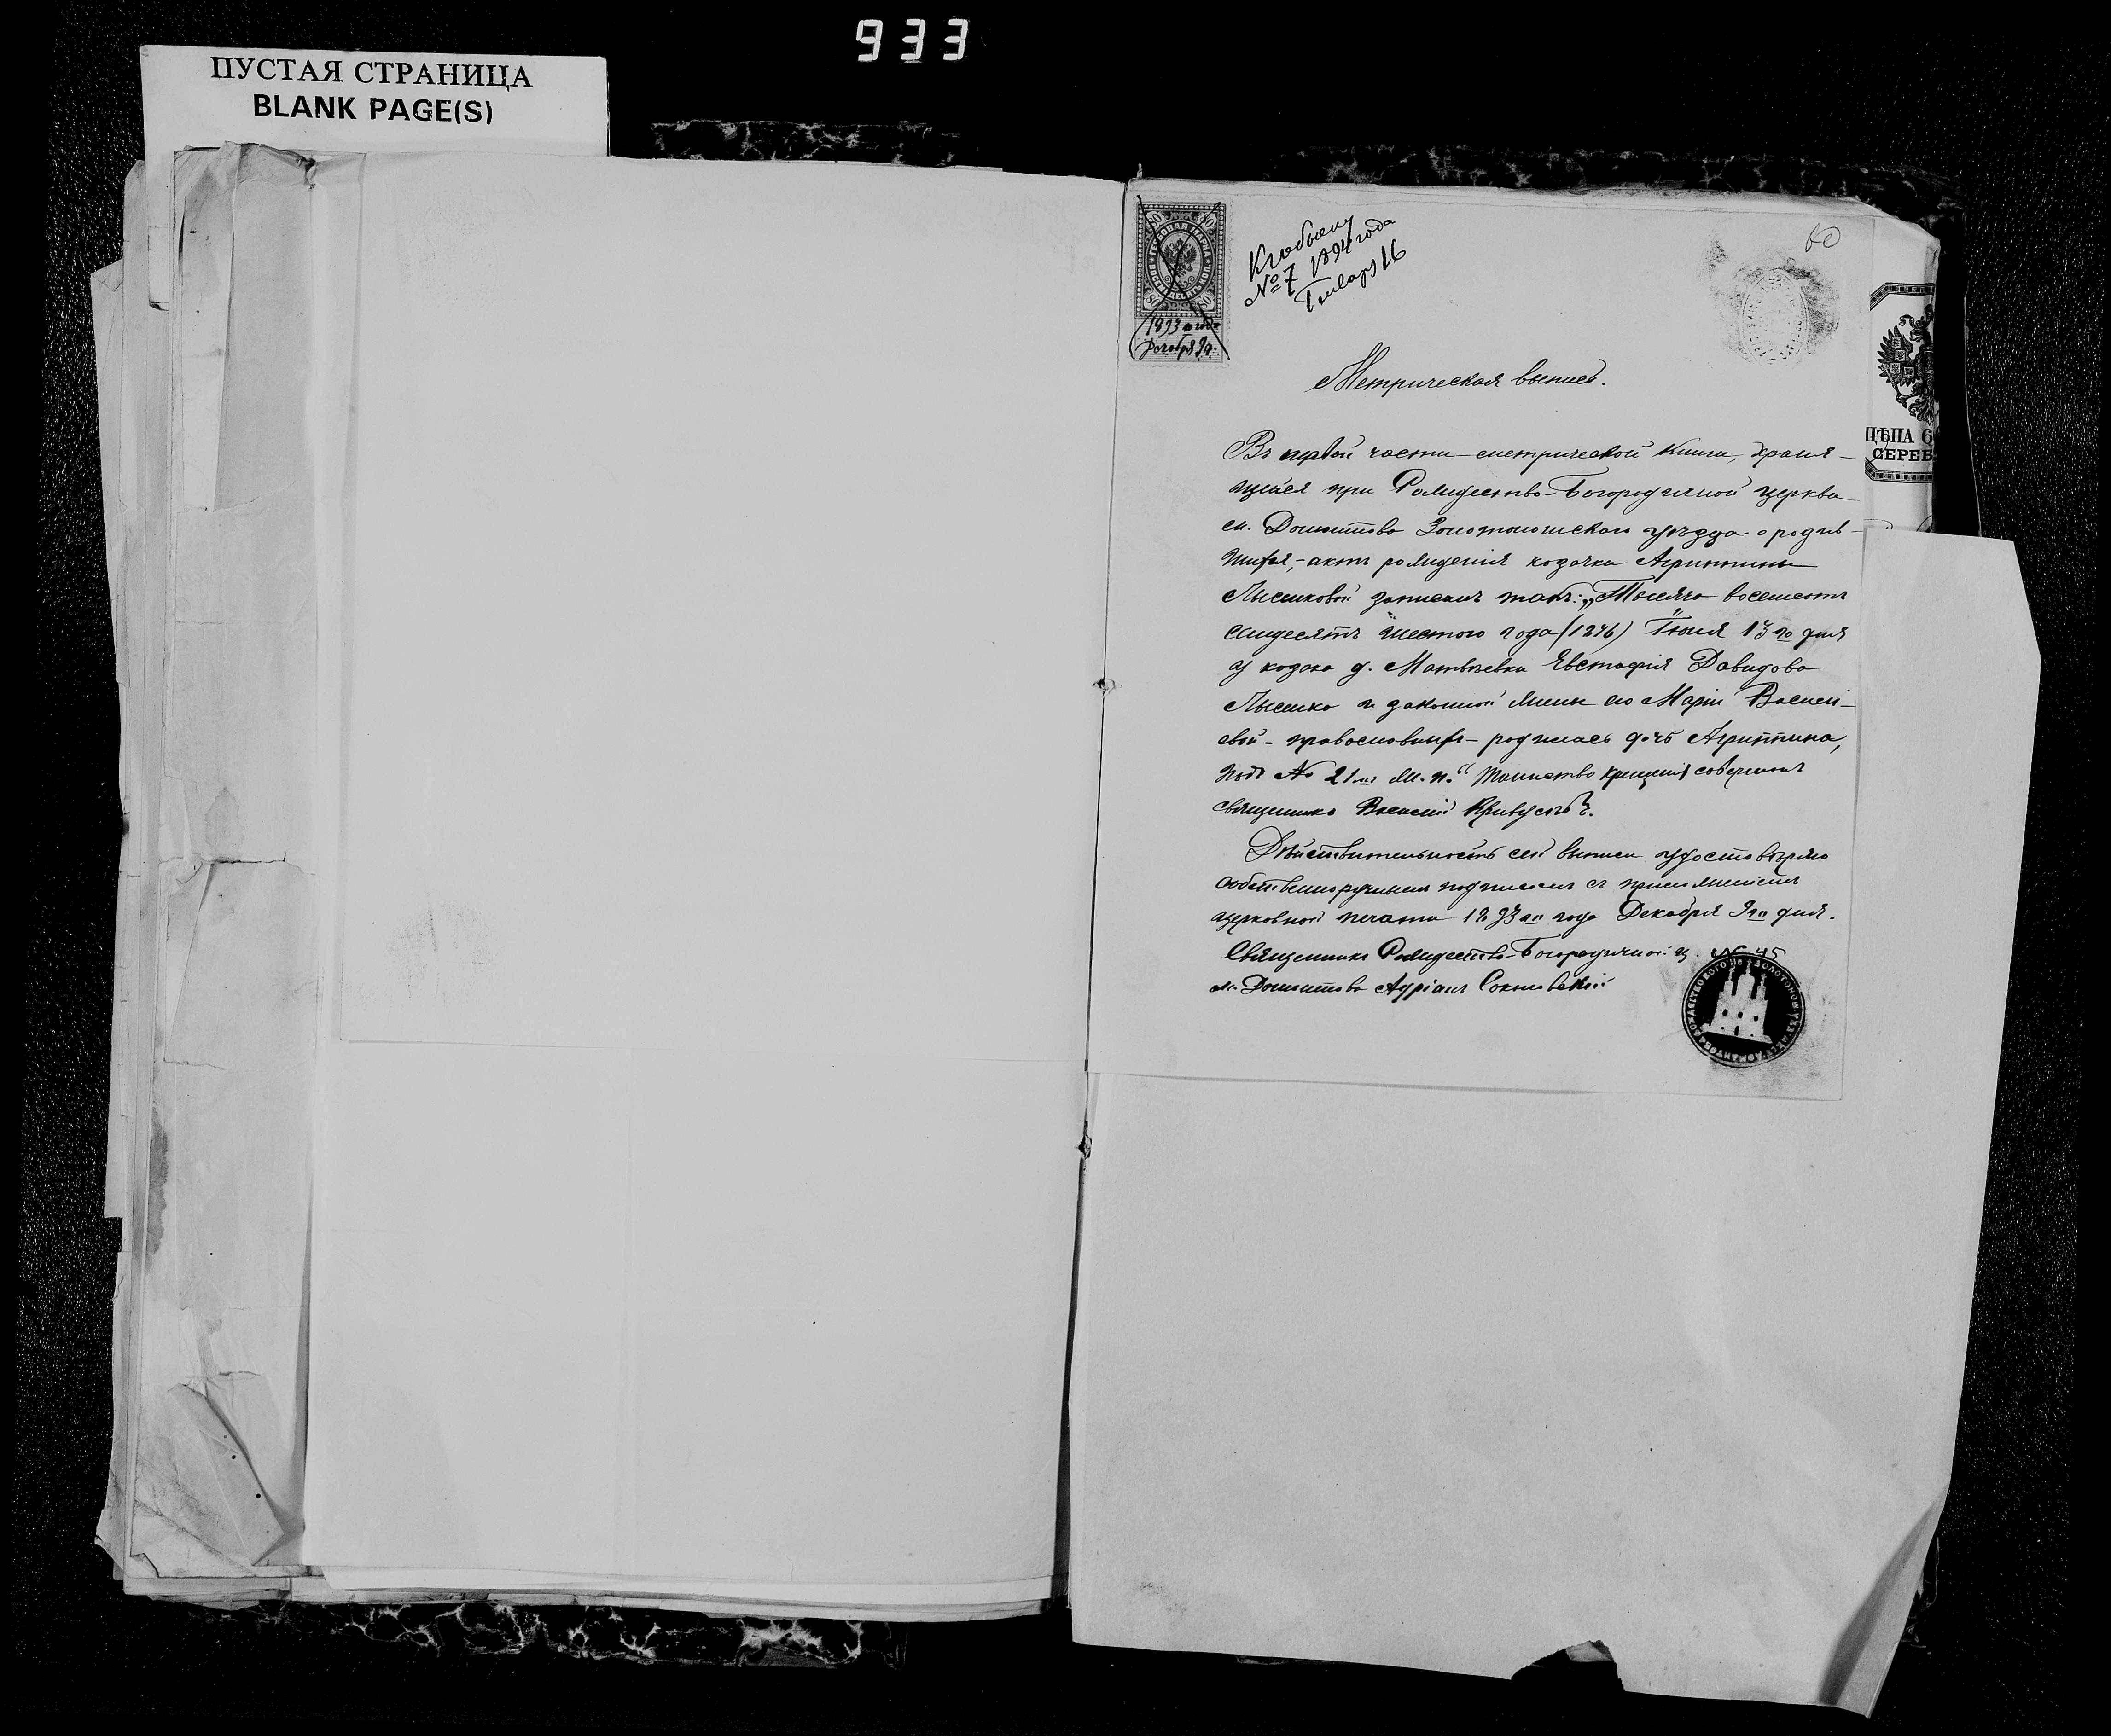 933
ПУСТАЯ СТРАНИЦА
BLANK PAGE(S)
К г. обыску
№ 7 1894 года
Января 16
60
1893 го года
Декабря 9 д.
ЦѢНА 6
СЕРЕБ
Метрическая выпись.
Въ первой части метрической книги, храня-
щейся при Рождество-Богородичной церкви
м. Домонтова Золотоношскаго уѣзда о родив-
шихся,- актъ рожденія козачки Агриппины
Лысенковой записанъ такъ: „Тысяча восемсотъ
семдесятъ шестого года (1876) Іюня 13 го дня
у козака д. Матвѣевки Евстафія Давидова
Лысенко и законной жены его Маріи Василі-
евой - православныхъ - родилась дочь Агриппина,
подъ № 21 мъ ж. п." Таинство крещенія совершилъ
священникъ Василій
Дѣйствительность сей выписи удостовѣряю
собственноручнымъ подписомъ съ приложеніемъ
церковной печати 1893 го года Декабря 9 го дня.
Священникъ Рождество-Богородичной ц. № 45
м. Домонтова Адріанъ Соколовскій